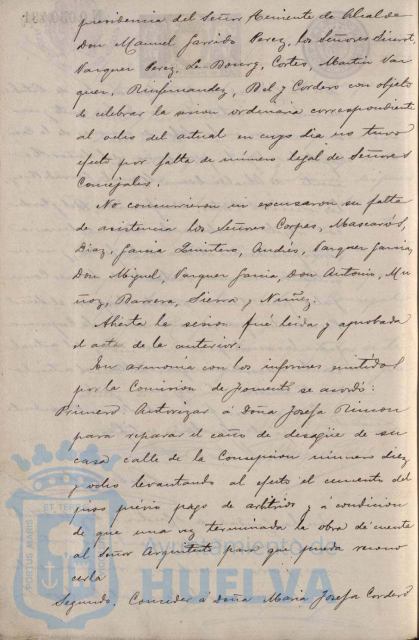 presidencia del Señor Teniente de Alcalde
Don Manuel Garrido Perez, los Señores
Vazquez Perez, Le Bourg, Cortes, Martin Vaz
quez, Rinfernandez, Bel y Cordero con objeto
de celebrar la sesion ordinaria correspondiente
al ocho del actual en cuyo dia no tuvo
efecto por falta de número legal de Señores
Concejales.
No concurrieron ni excusaron su falta
de asistencia los Señores Corpas, Mascarós,
Diaz, Garcia Quintero, Andrés, Vazquez Garcia,
Don Miguel, Vazquez Garcia, Don Antonio, Mu
ñoz, Barrera, Sierra y Nuñez.
Abierta la sesion fué leida y aprobada
el acta de la anterior.
En armonia con los informes emitidos
por la Comision de Fomento se acordó:
Primero. Autorizar á Doña Josefa Rincon
para reparar el caño de desagüe de su
casa calle de la Concepcion número diez
y ocho levantando al efecto el cemento del
piso prévio pago de arbitrios y á condicion
de que una vez terminada la obra dé cuenta
al Señor Arquitecto para que pueda recono
cerla
Segundo. Conceder á Doña Maria Josefa Cordero
PORTUS MARIS
ET TERRAE
Ayuntamiento de
HUELVA